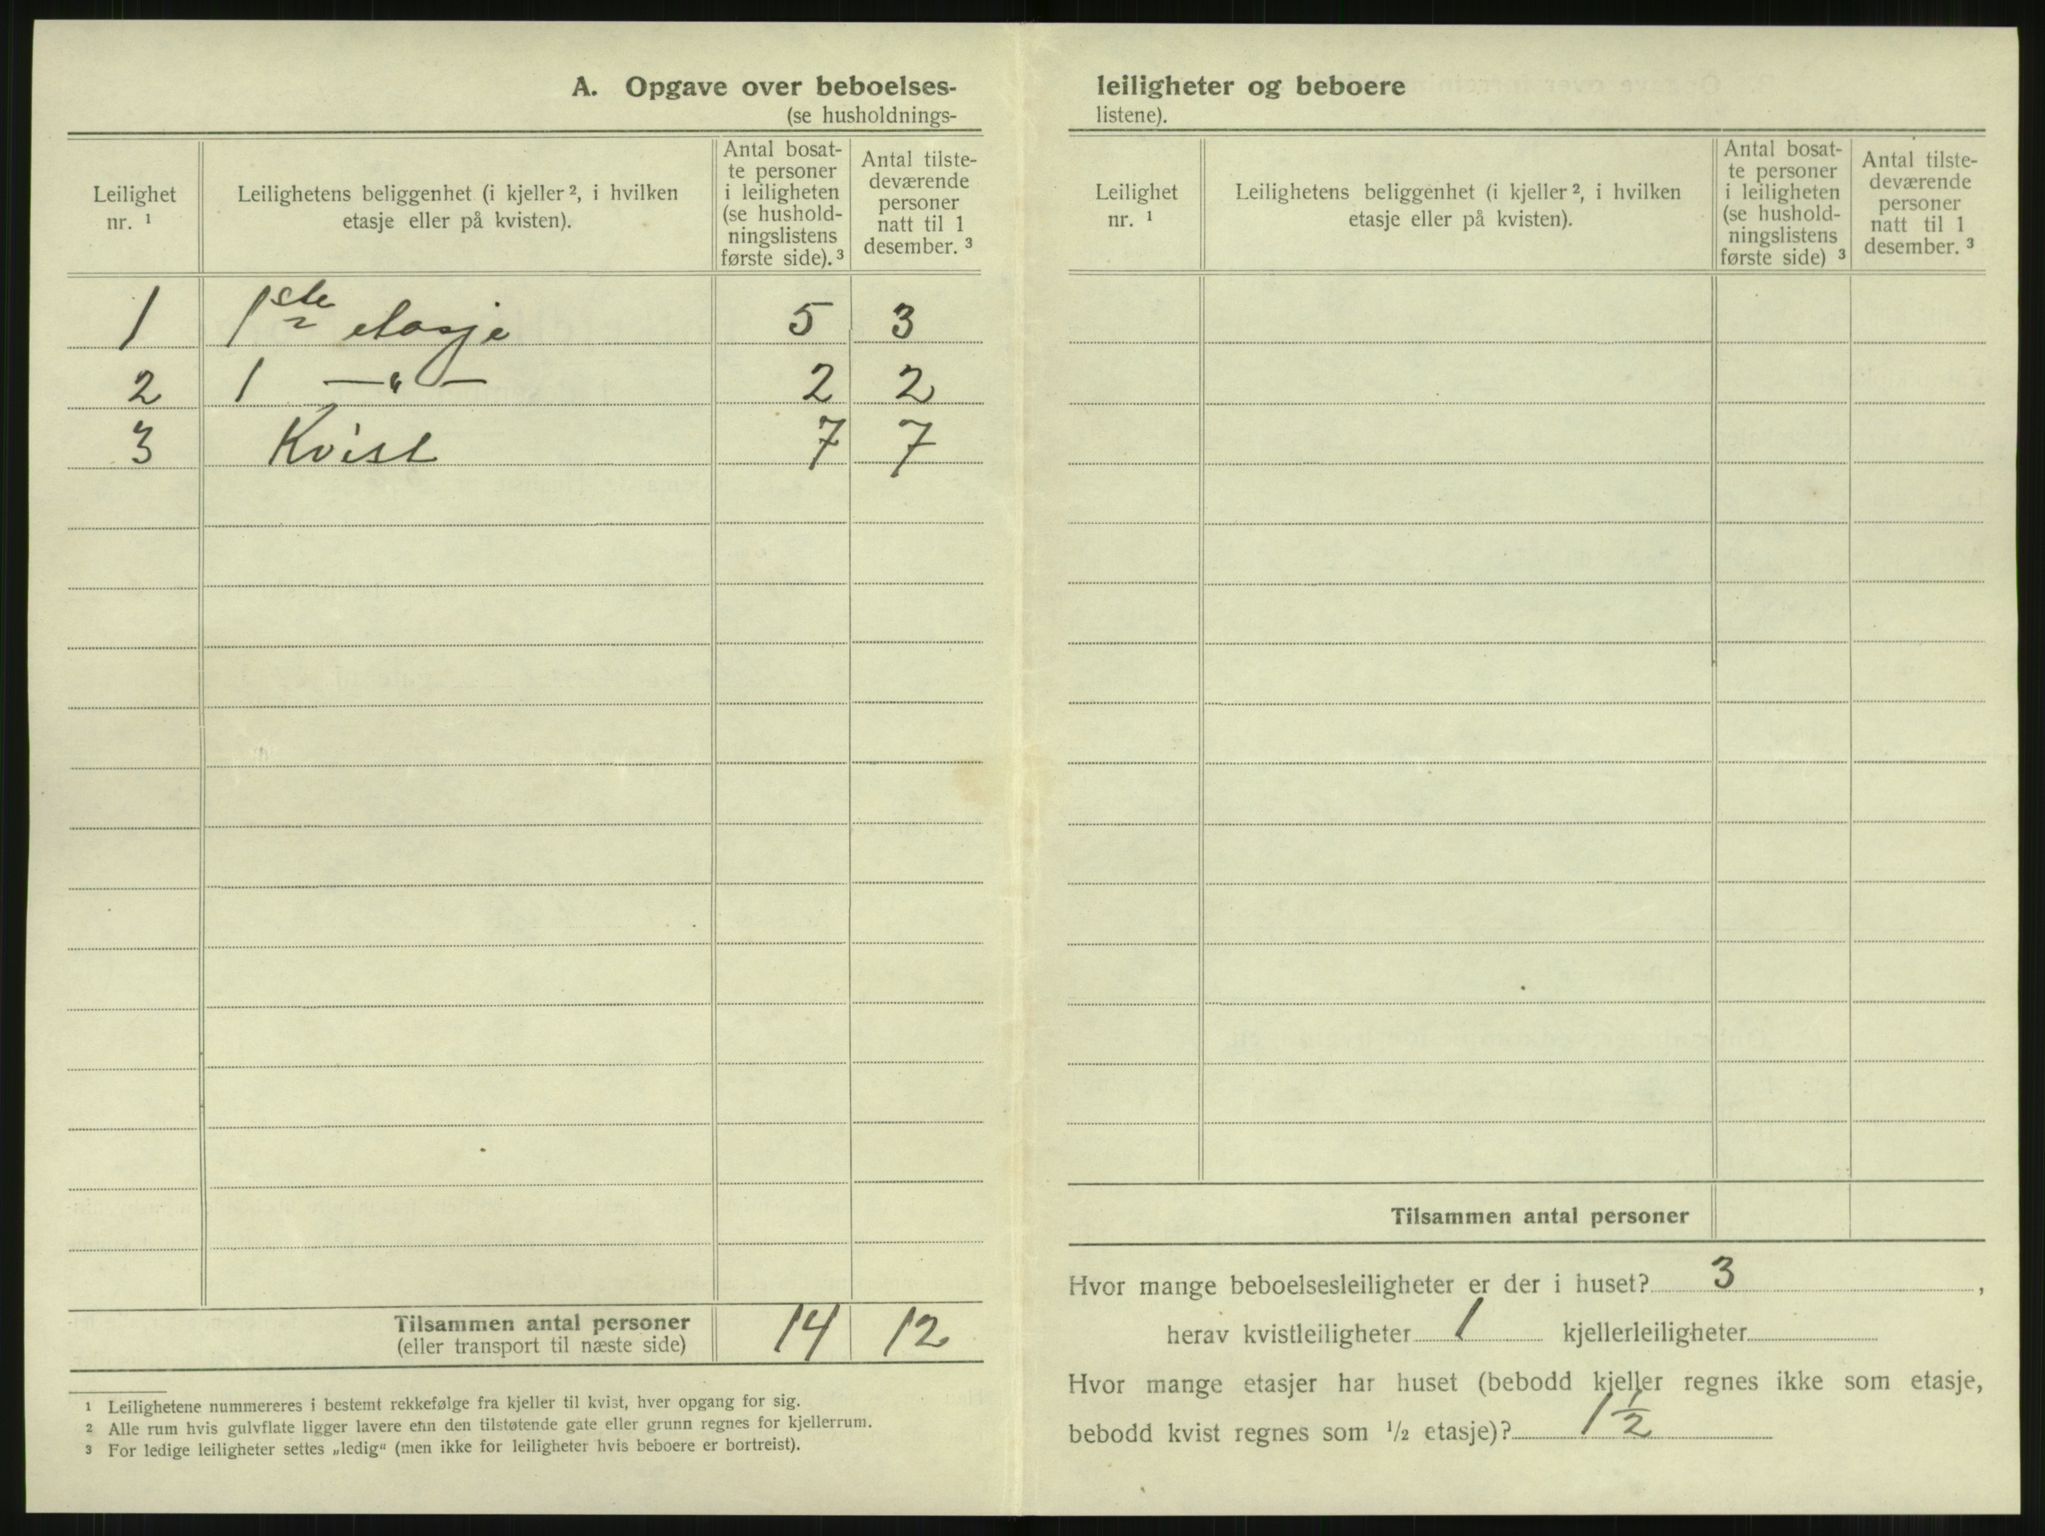 A. Opgave over beboelses-
(se husholdnings-
Leilighet nr. ¹
Leilighetens beliggenhet (i kjeller ², i hvilken etasje eller på kvisten).
Antal bosat-
te personer
i leiligheten
(se hushold-
ningslistens
første side). ³
Antal tilste-
deværende
personer
natt til 1
desember. ³
1 1ste etasje 5 3
2 1 —"— 2 2
3 Kvist 7 7
Tilsammen antal personer 14 12
(eller transport til næste side)
¹ Leilighetene nummereres i bestemt rekkefølge fra kjeller til kvist, hver opgang for sig.
² Alle rum hvis gulvflate ligger lavere enn den tilstøtende gate eller grunn regnes for kjellerrum.
³ For ledige leiligheter settes „ledig“ (men ikke for leiligheter hvis beboere er bortreist).
leiligheter og beboere
listene).
Leilighet nr. ¹
Leilighetens beliggenhet (i kjeller ², i hvilken etasje eller på kvisten).
Antal bosat-
te personer
i leiligheten
(se hushold-
ningslistens
første side) ³
Antal tilste-
deværende
personer
natt til 1
desember. ³
Tilsammen antal personer
Hvor mange beboelsesleiligheter er der i huset? 3,
herav kvistleiligheter 1 kjellerleiligheter
Hvor mange etasjer har huset (bebodd kjeller regnes ikke som etasje,
bebodd kvist regnes som ½ etasje)? 1½